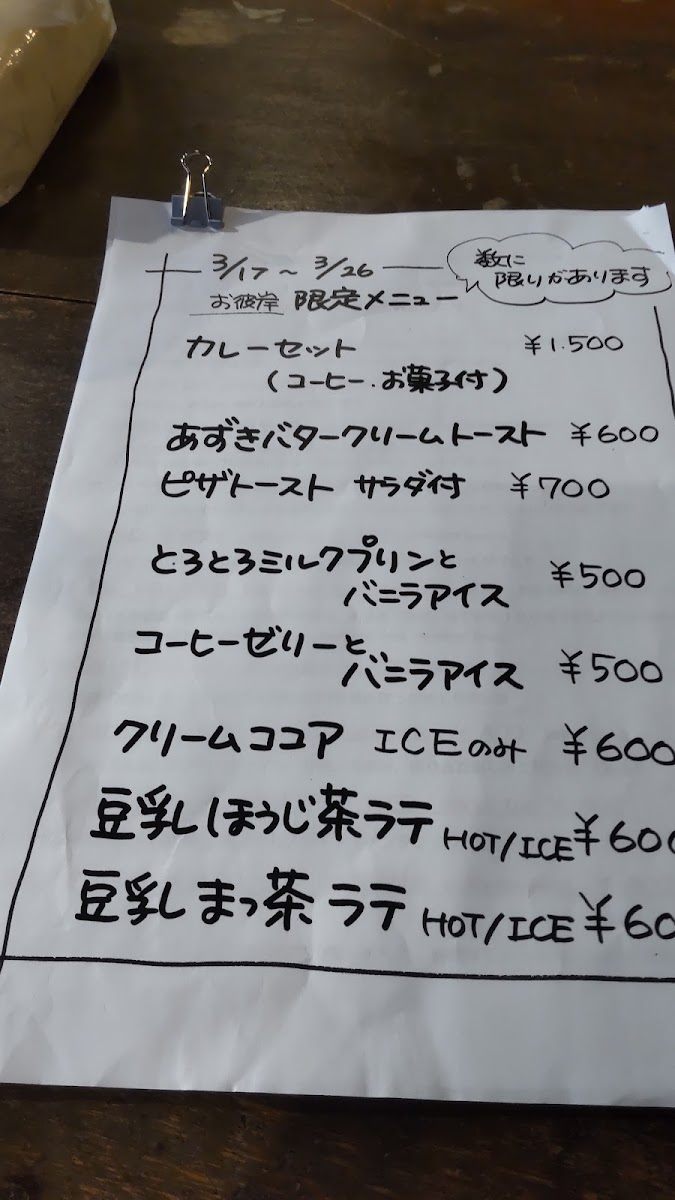 3/17 ~ 3/26
数に
限りがあります
お彼岸 限定メニュー
カレーセット ¥1.500
(コーヒー.お菓子付)
あずきバタークリームトースト ¥600
ピザトースト サラダ付 ¥700
とろとろミルクプリンと
バニラアイス ¥500
コーヒーゼリーと
バニラアイス ¥500
クリームココア ICEのみ ¥600
豆乳ほうじ茶ラテ HOT/ICE ¥600
豆乳まっ茶ラテ HOT/ICE ¥60